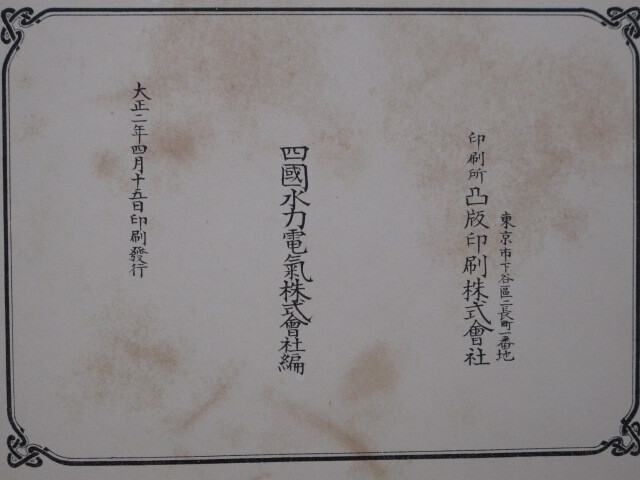 東京市下谷區二長町一番地
印刷所 凸版印刷株式會社
四國水力電氣株式會社編
大正二年四月十五日印刷發行